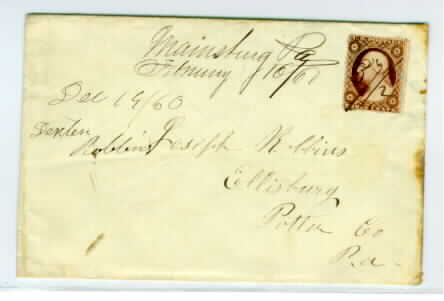 Mainsburg Pa
February 10/61
Dec 19/60
Dexter
Robbins
Joseph Robbins
Ellisburg
Potter Co
Pa